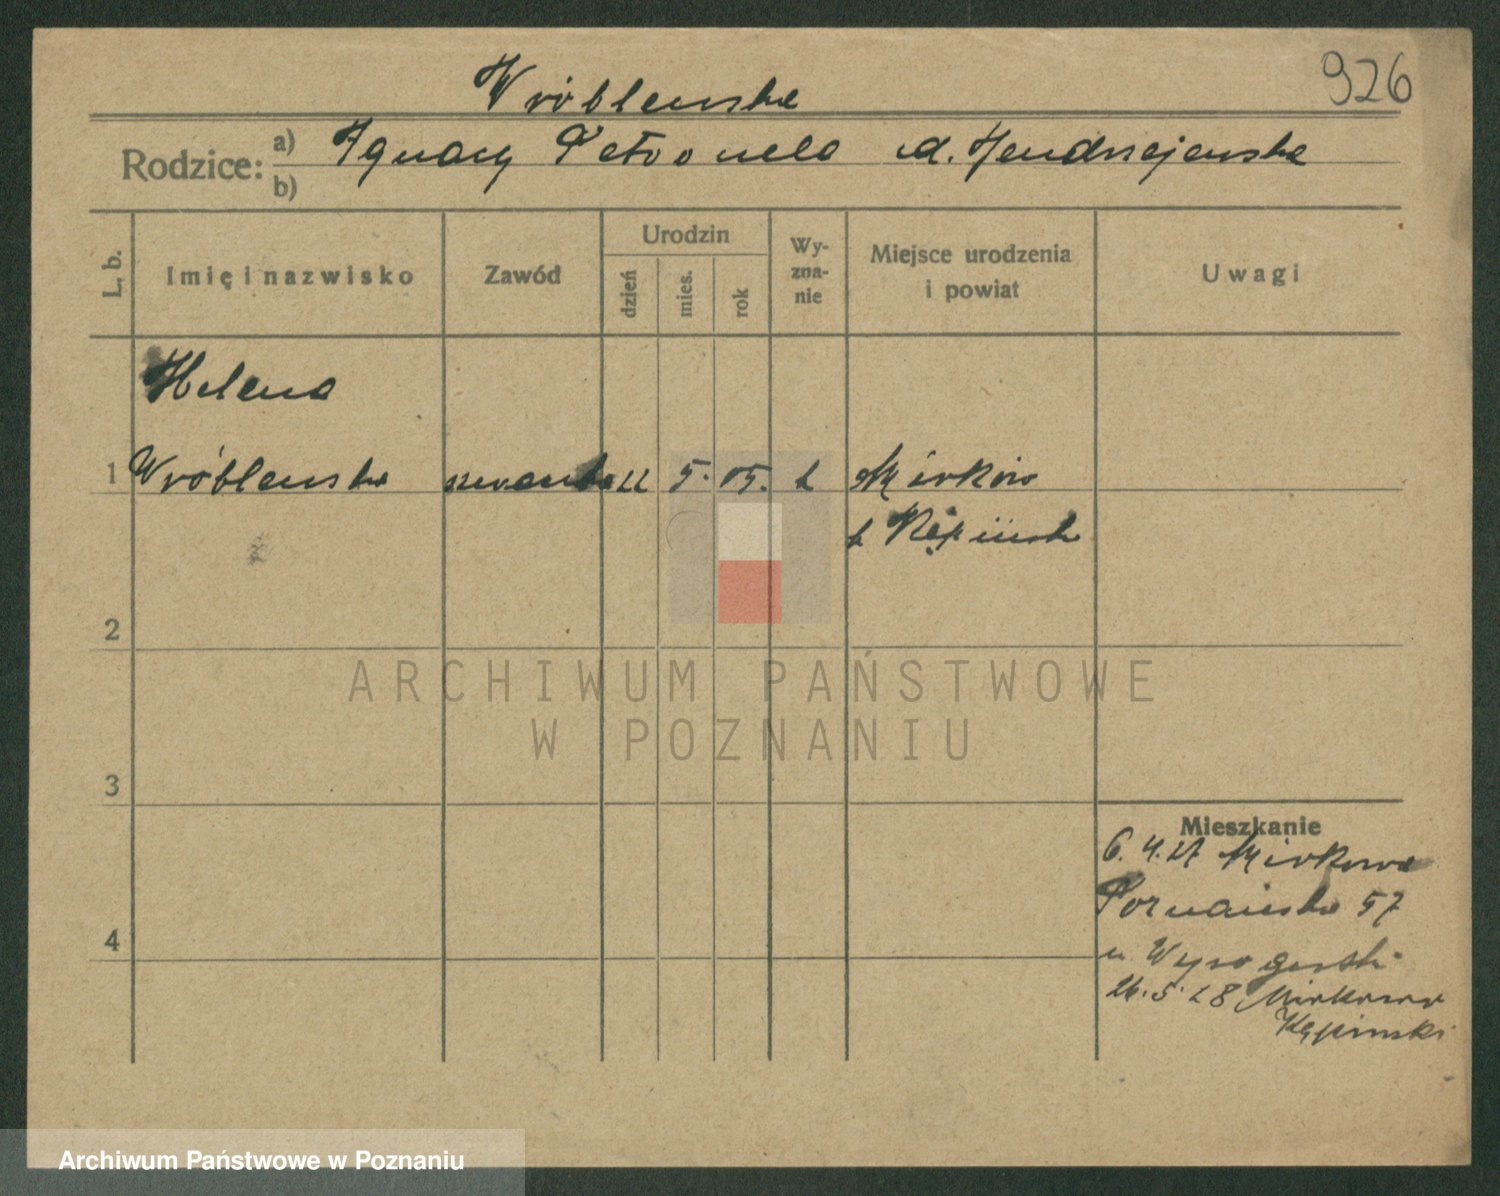 926
Wróblewska
Rodzice: a) Ignacy Petronela d. Jendrzejewska
b)
L. b. Imię i nazwisko Zawód Urodzin dzień mies. rok Wy-zna-nie Miejsce urodzenia i powiat Uwagi
Helena
1 Wróblewska szwaczka 22 5. 05. k Mirków
k Kępińsk
2
ARCHIWUM PAŃSTWOWE
W POZNANIU
3
Mieszkanie
6. 4. 27 Mirkowa
Poznańska 57
4
u. Wysogurski
26. 5 28 Mirkowa
Kępiński
Archiwum Państwowe w Poznaniu